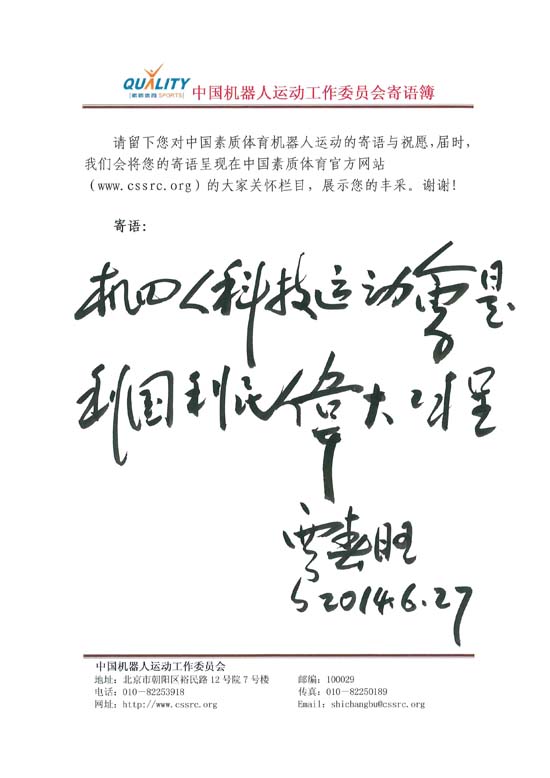 QUALITY
素质体育 SPORTS
中国机器人运动工作委员会寄语簿
请留下您对中国素质体育机器人运动的寄语与祝愿,届时,
我们会将您的寄语呈现在中国素质体育官方网站
(www.cssrc.org)的大家关怀栏目,展示您的丰采。谢谢!
寄语:
机四人科技运动会是
利国利民伟大工程
贾春旺
2014.6.27
中国机器人运动工作委员会
地址:北京市朝阳区裕民路12号院7号楼 邮编:100029
电话:010-82253918 传真:010-82250189
网址:http://www.cssrc.org Email:shichangbu@cssrc.org